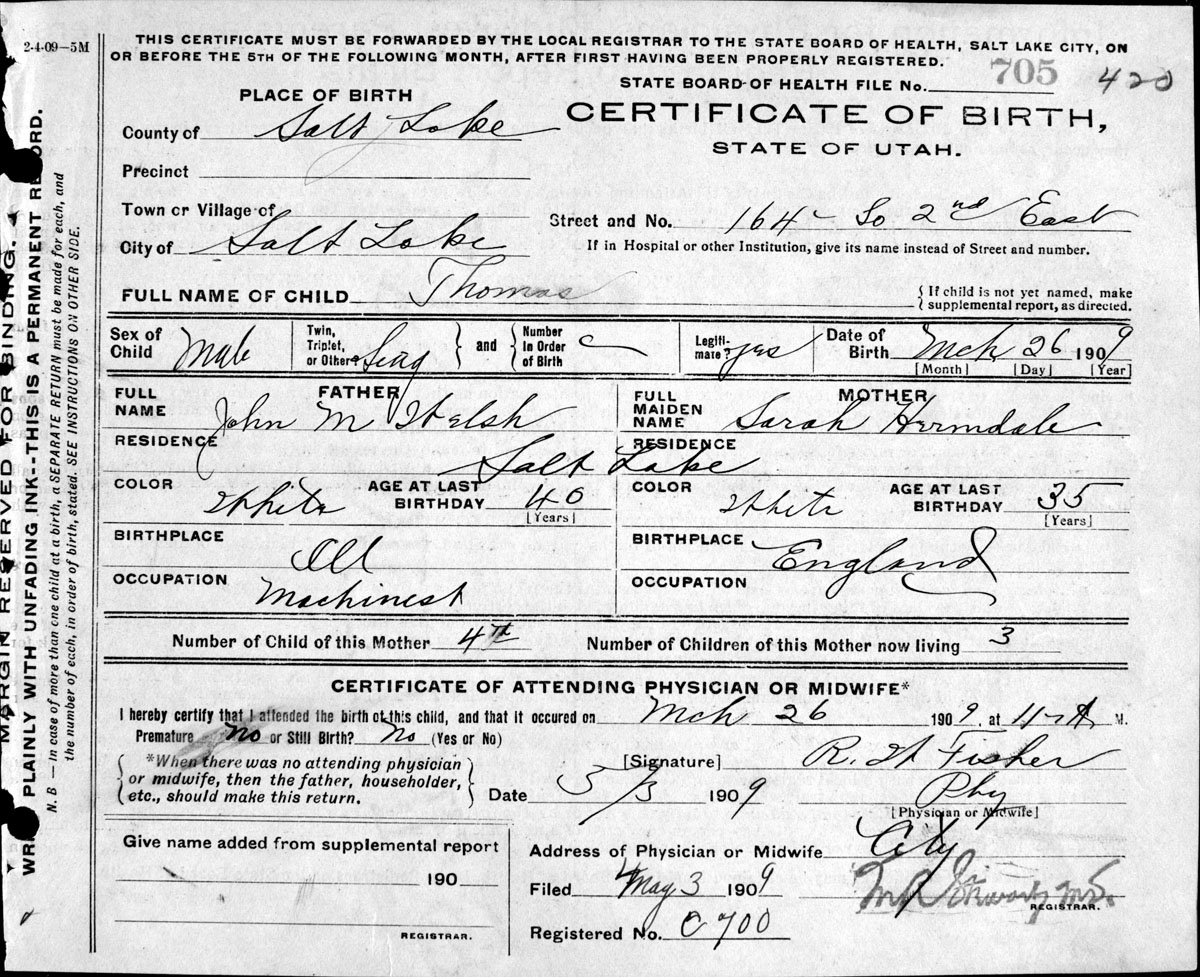 2-4-09—5M
THIS CERTIFICATE MUST BE FORWARDED BY THE LOCAL REGISTRAR TO THE STATE BOARD OF HEALTH, SALT LAKE CITY, ON
OR BEFORE THE 5TH OF THE FOLLOWING MONTH, AFTER FIRST HAVING BEEN PROPERLY REGISTERED.
STATE BOARD OF HEALTH FILE No. 705 420
PLACE OF BIRTH
CERTIFICATE OF BIRTH,
STATE OF UTAH.
County of Salt Lake
Precinct
Town or Village of
Street and No. 164 So 2nd East
City of Salt Lake
If in Hospital or other Institution, give its name instead of Street and number.
FULL NAME OF CHILD Thomas
{ If child is not yet named, make
supplemental report, as directed.
Sex of Child Male
Twin, Triplet, or Other Sing } and { Number in Order of Birth
Legiti-mate? yes
Date of Birth Mch 26 1909
[Month] [Day] [Year]
FATHER
FULL NAME John M Welsh
MOTHER
FULL MAIDEN NAME Sarah
RESIDENCE RESIDENCE
Salt Lake
COLOR White AGE AT LAST BIRTHDAY 40 [Years]
COLOR White AGE AT LAST BIRTHDAY 35 [Years]
BIRTHPLACE Ill
BIRTHPLACE England
OCCUPATION Machinest
OCCUPATION
Number of Child of this Mother 4th
Number of Children of this Mother now living 3
CERTIFICATE OF ATTENDING PHYSICIAN OR MIDWIFE*
I hereby certify that I attended the birth of this child, and that it occured on Mch 26 1909, at 11 A M.
Premature No or Still Birth? No (Yes or No)
{ *When there was no attending physician
or midwife, then the father, householder,
etc., should make this return. }
[Signature] R. W Fisher
Date 3/3 1909
Phy
[Physician or Midwife]
Give name added from supplemental report
190
REGISTRAR.
Address of Physician or Midwife City
Filed May 3 1909
REGISTRAR.
Registered No. C 700
MARGIN RESERVED FOR BINDING.
WRITE PLAINLY WITH UNFADING INK--THIS IS A PERMANENT RECORD.
N. B — In case of more than one child at a birth, a SEPARATE RETURN must be made for each, and
the number of each, in order of birth, stated. SEE INSTRUCTIONS ON OTHER SIDE.